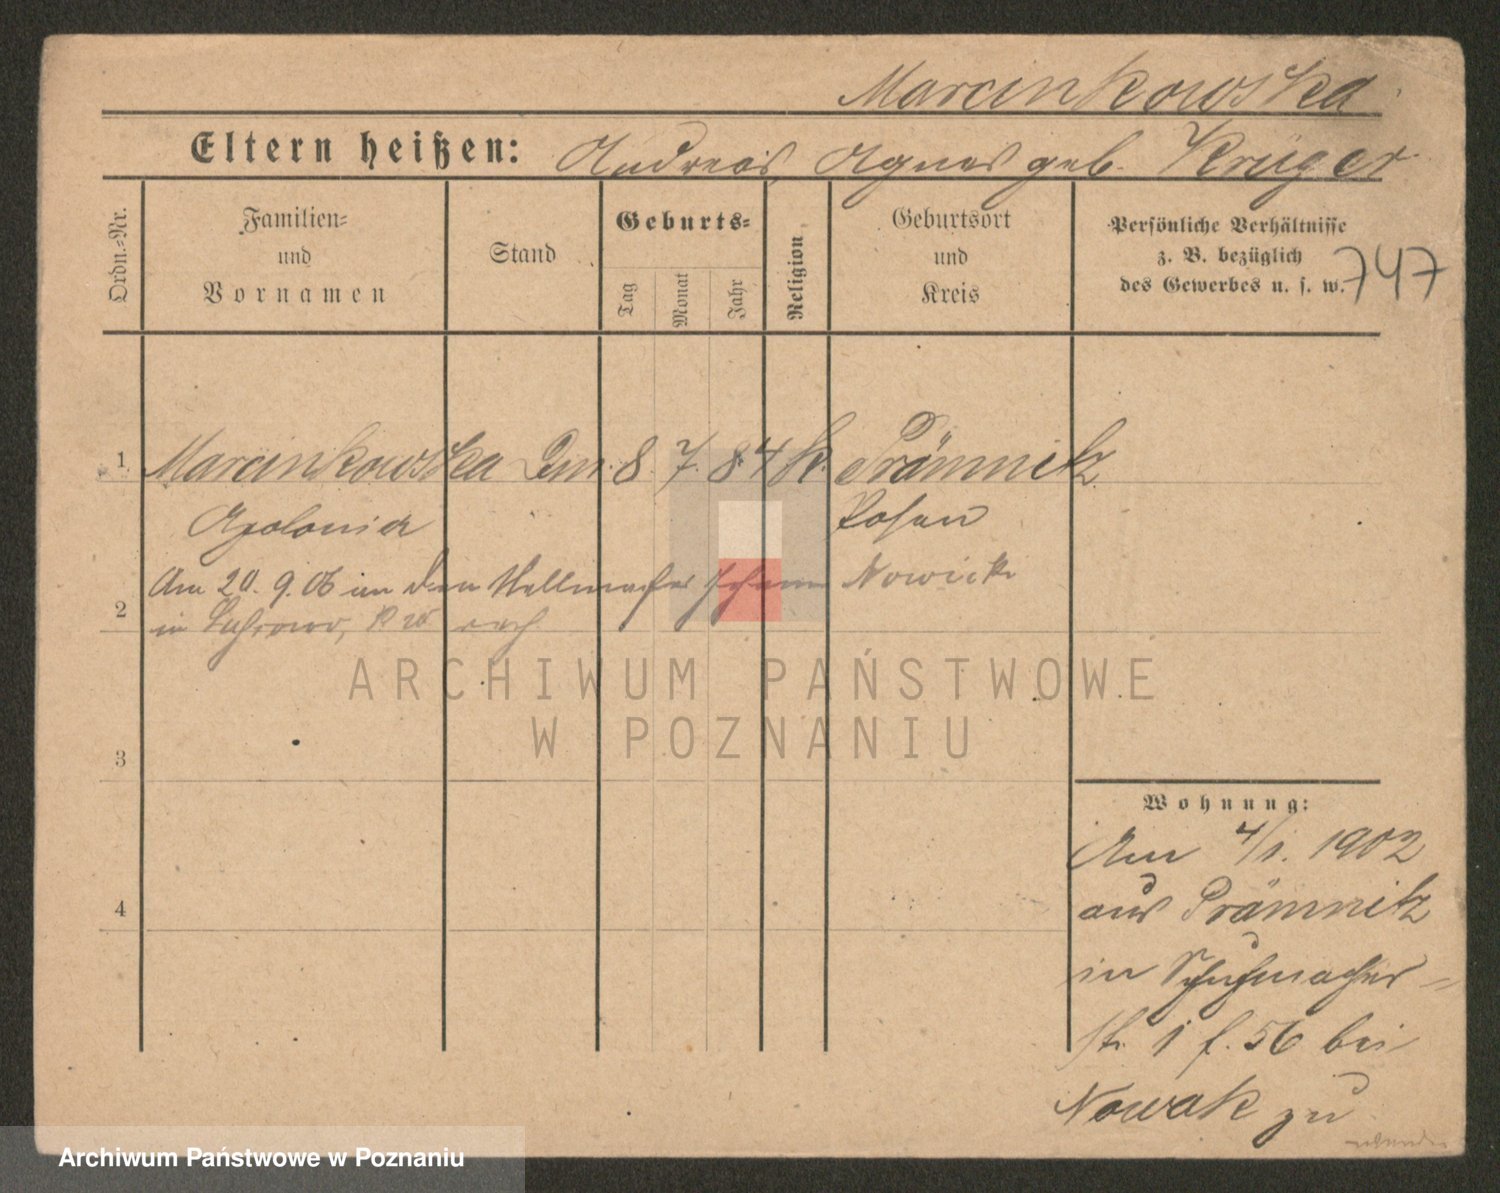 Marcinkowska
Eltern heißen: Andreas, Agnes geb. Krüger
Ordn.-Nr.
Familien-
und
Vornamen
Stand
Geburts-
Tag
Monat
Jahr
Religion
Geburtsort
und
Kreis
Persönliche Verhältnisse
z. B. bezüglich
des Gewerbes u. s. w.
747
1 Marcinkowska 8. 7. 84 k. Prämnitz
Apolonia Posen
Am 20. 9. 06 Johann Nowicki
2 in
ARCHIWUM PAŃSTWOWE
W POZNANIU
3
Wohnung:
Am 4/1. 1902
4 aus Prämnitz
in Schuhmacher-
str. 1 f. 56 bei
Nowak zu
Archiwum Państwowe w Poznaniu